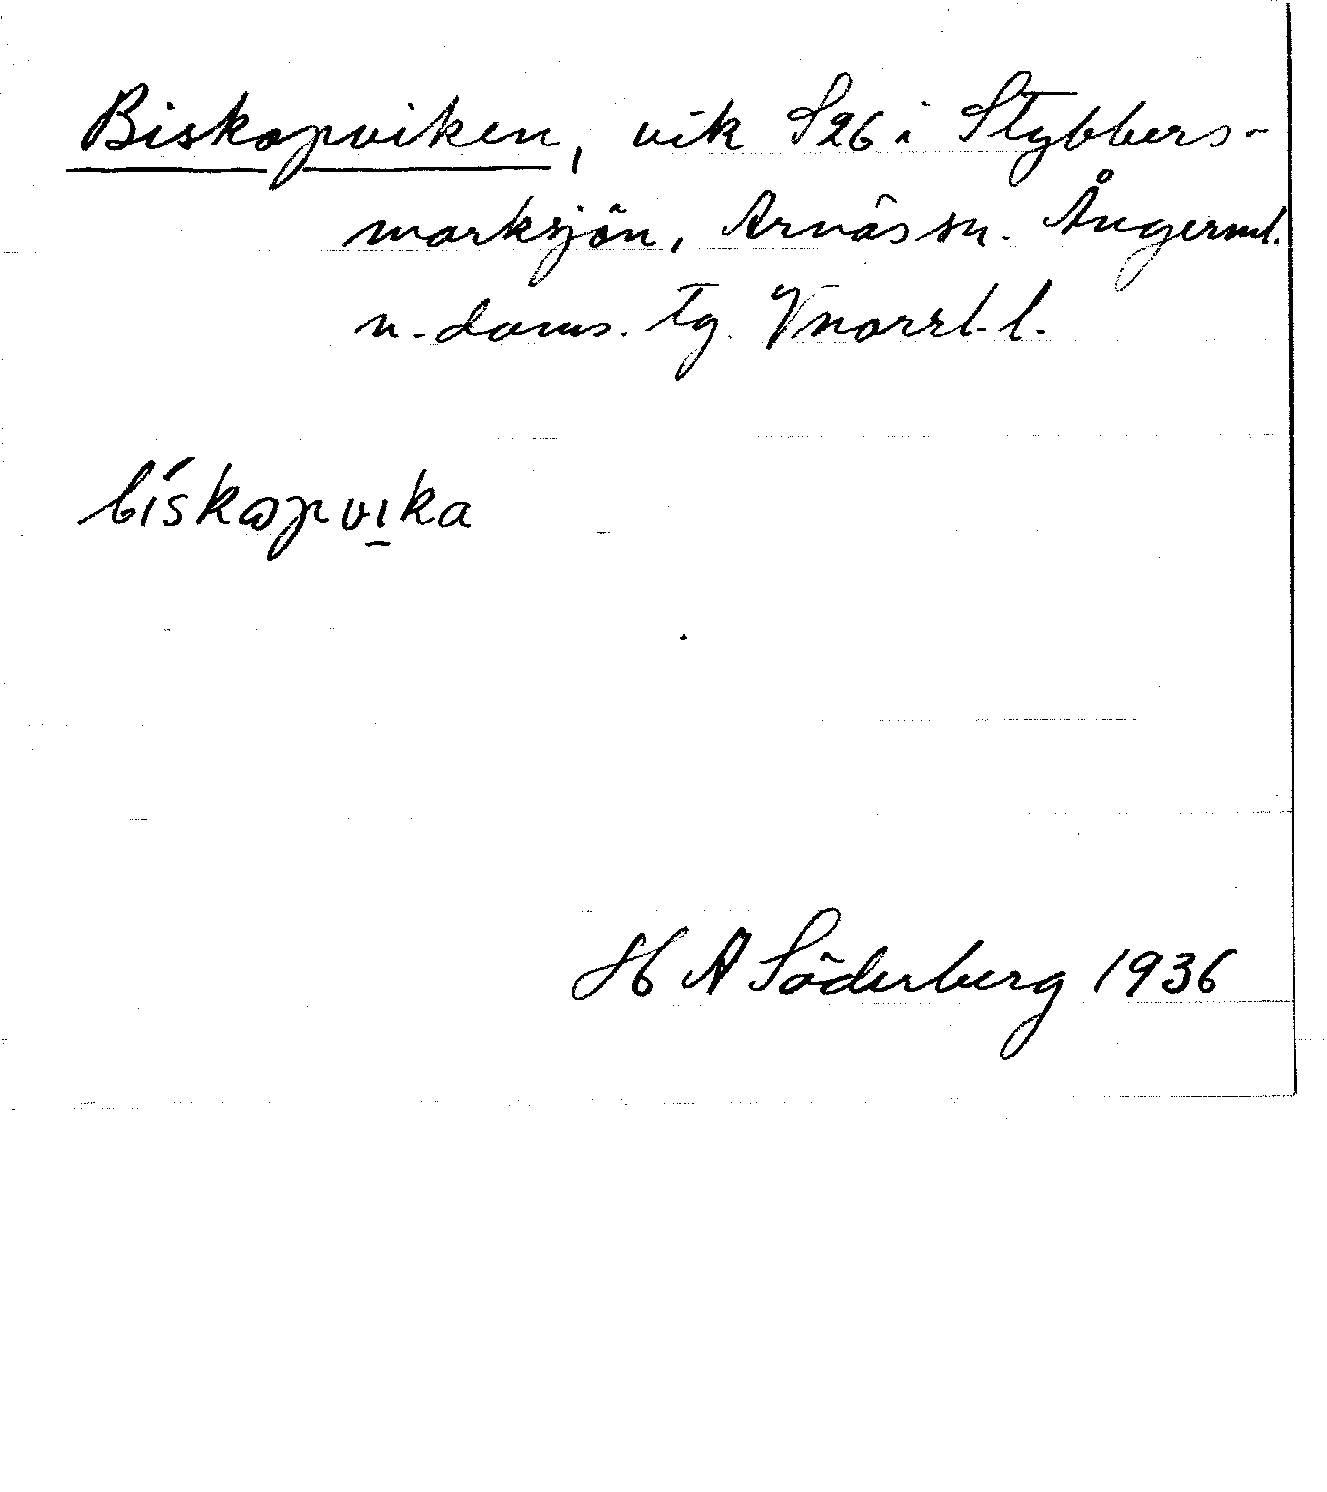 Biskopviken, vik S26 i Stybbers-
marksjön, Arnäs sn. Ångerml.
n. doms. tg. Vnorrl. l.
bískωpvı̲ka
H A Söderberg 1936